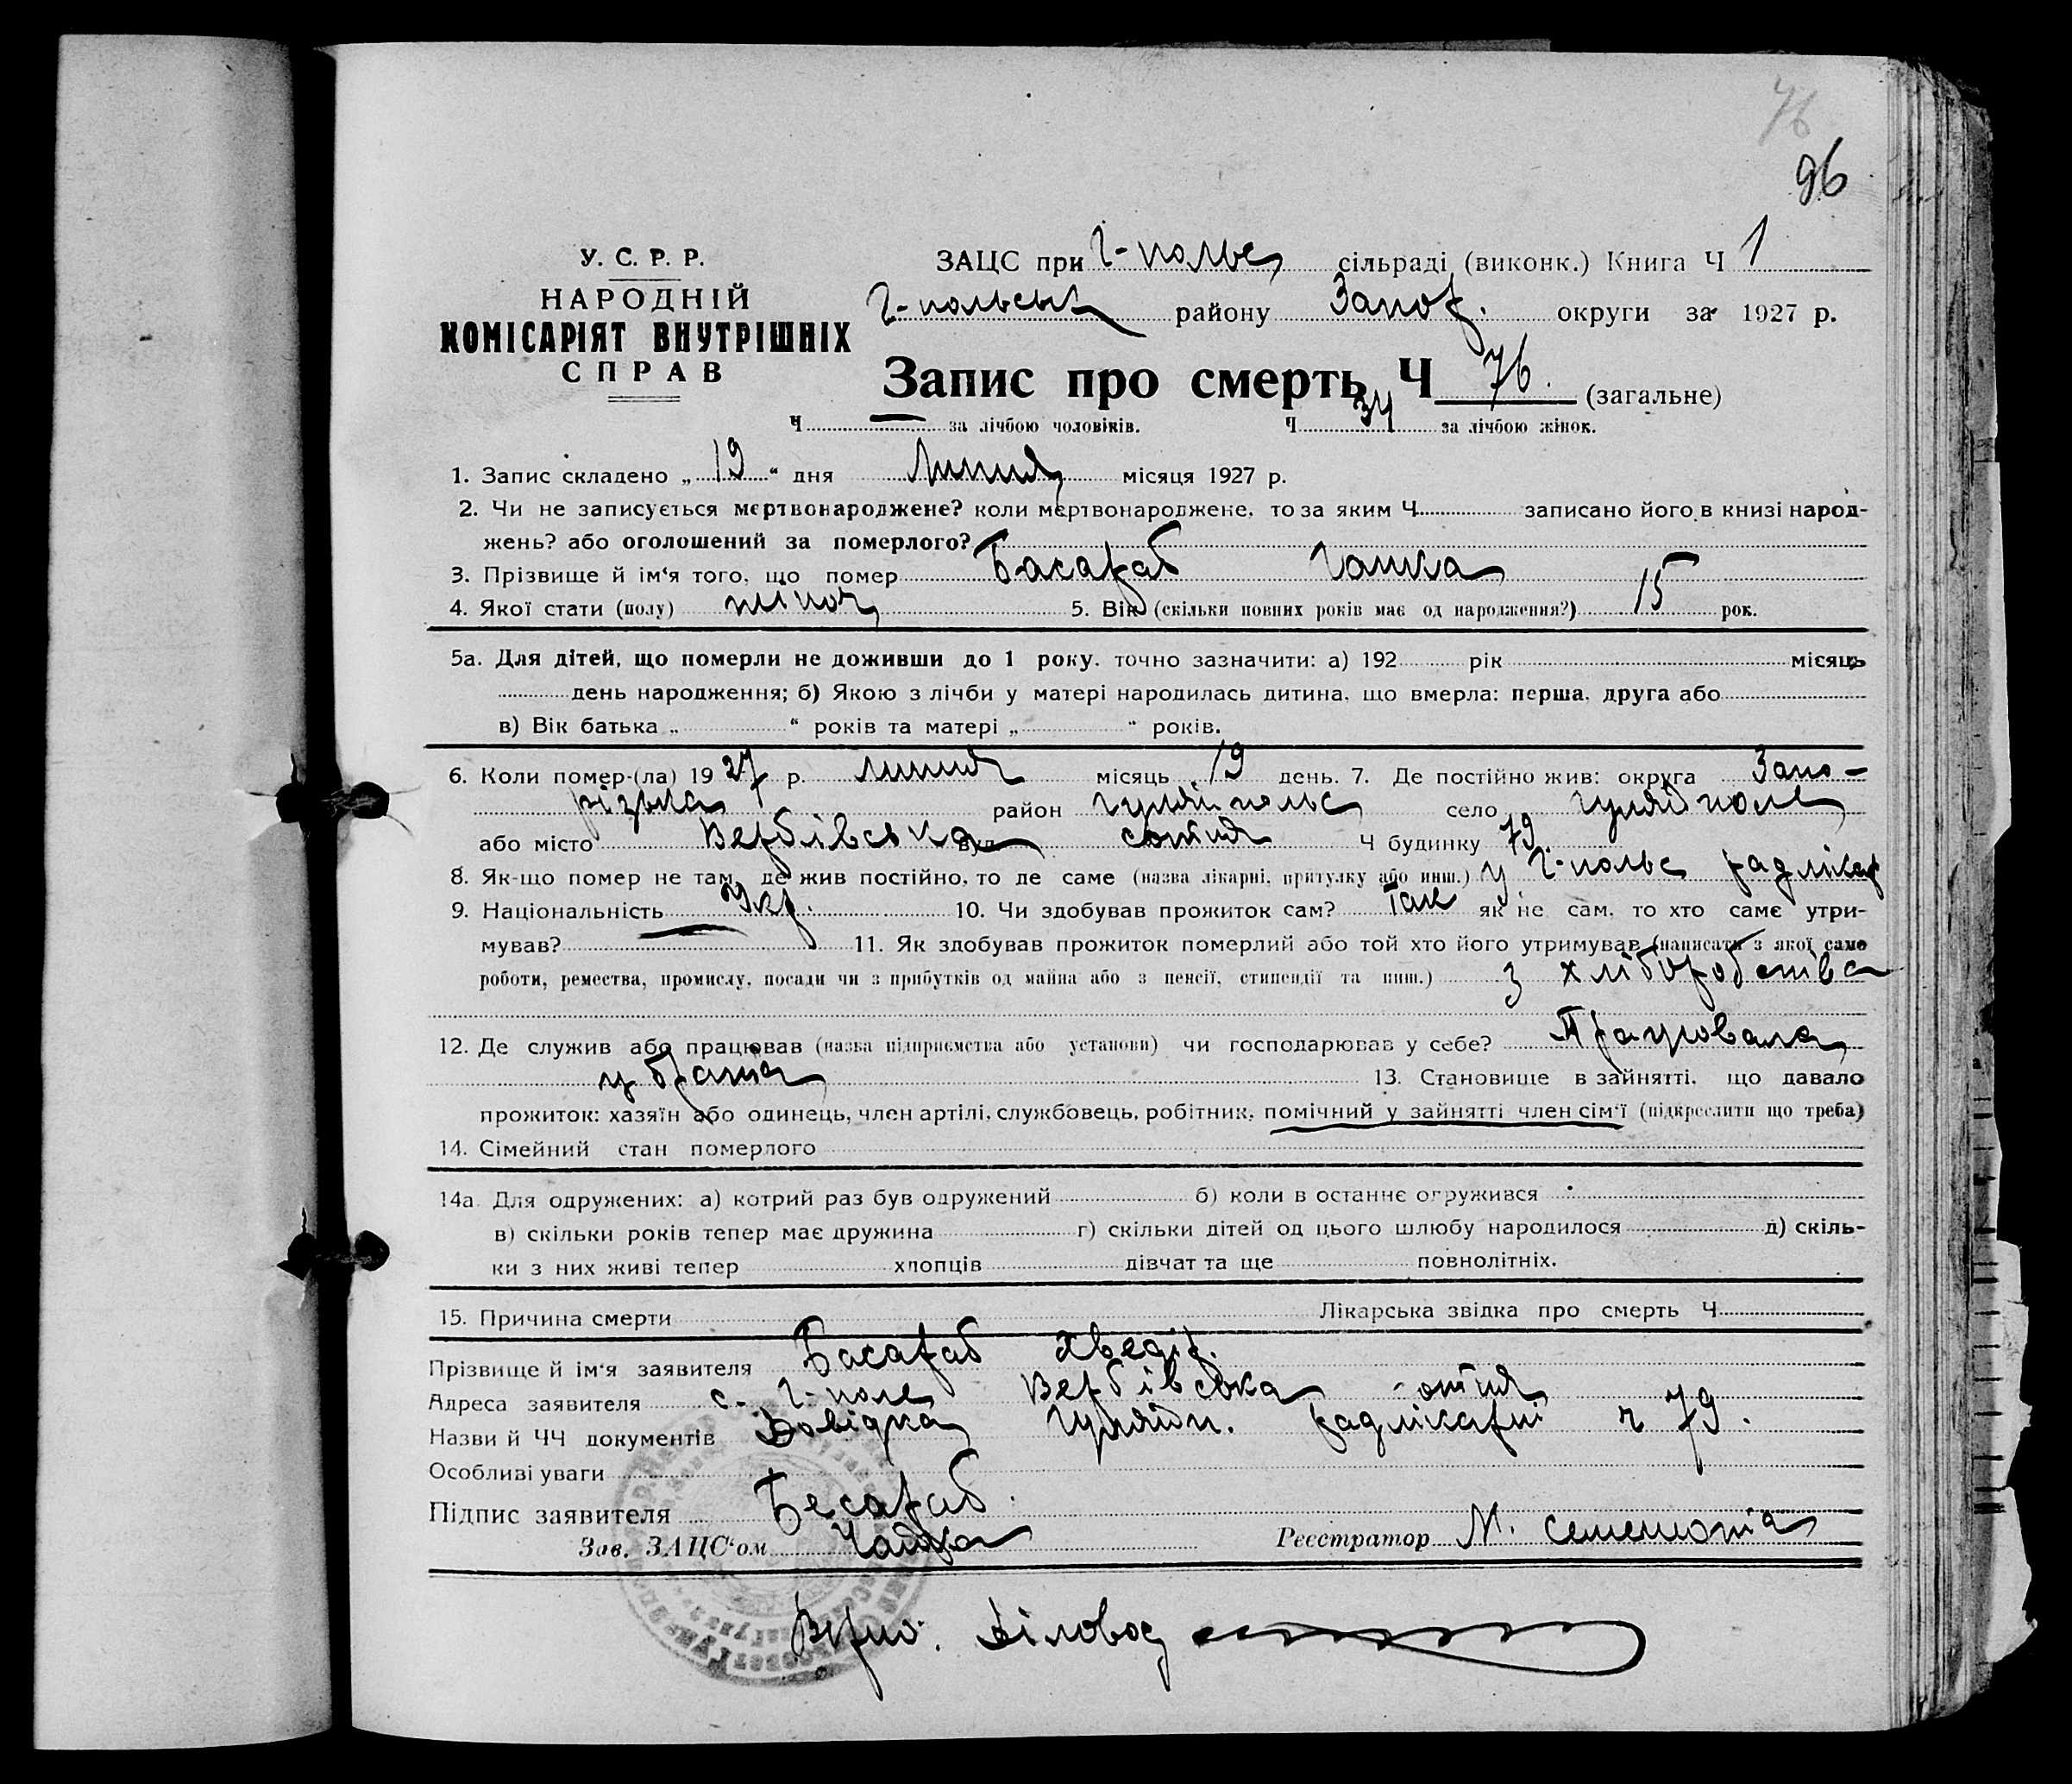 76
96
У. С. Р. Р.
НАРОДНІЙ
КОМІСАРІЯТ ВНУТРІШНІХ
СПРАВ
ЗАЦС при Г-польс сільраді (виконк.) Книга Ч 1
Г-польськ району Запор. округи за 1927 р.
Запис про смерть Ч 76. (загальне)
Ч — за лічбою чоловіків. Ч 34 за лічбою жінок.
1. Запис складено „ 19 “ дня Липня місяця 1927 р.
2. Чи не записується мертвонароджене? коли мертвонароджене, то за яким Ч записано його в книзі народ-
жень? або оголошений за померлого?
3. Прізвище й ім‘я того, що помер Басараб Ганна
4. Якої стати (полу) жіноч 5. Вік (скільки повних років має од народження?) 15 рок.
5а. Для дітей, що померли не доживши до 1 року. точно зазначити: а) 192 рік місяць
день народження; б) Якою з лічби у матері народилась дитина, що вмерла: перша, друга або
в) Вік батька „ “ років та матері „ “ років.
6. Коли помер-(ла) 19 27 р. липня місяць 19 день. 7. Де постійно жив: округа Запо-
різька район Гуляйпольс село Гуляйполе
або місто Вербівська вул. сотня Ч будинку 79
8. Як-що помер не там, де жив постійно, то де саме (назва лікарні, притулку або инш.) у Г-польс радлікар
9. Національність Укр. 10. Чи здобував прожиток сам? Так як не сам, то хто саме утри-
мував? 11. Як здобував прожиток померлий або той хто його утримував (написати з якої саме
роботи, ремества, промислу, посади чи з прибутків од майна або з пенсії, стипендії та инш.) з хліборобства
12. Де служив або працював (назва підприємства або установи) чи господарював у себе? Працювала
у брата 13. Становище в зайнятті, що давало
прожиток: хазяїн або одинець, член артілі, службовець, робітник, помічний у зайнятті член сім‘ї (підкреслити що треба)
14. Сімейний стан померлого
14а. Для одружених: а) котрий раз був одружений б) коли в останнє огружився
в) скільки років тепер має дружина г) скільки дітей од цього шлюбу народилося д) скіль-
ки з них живі тепер хлопців дівчат та ще повнолітніх.
15. Причина смерти Лікарська звідка про смерть Ч
Прізвище й ім‘я заявителя Басараб Хведір.
Адреса заявителя с. Г-поле Вербівська сотня
Назви й ЧЧ документів Довідка Гуляйп. радлікарні ч 79.
Особливі уваги
Підпис заявителя Бесараб.
Зав. ЗАЦС‘ом Реєстратор М.
Вірно: Діловод